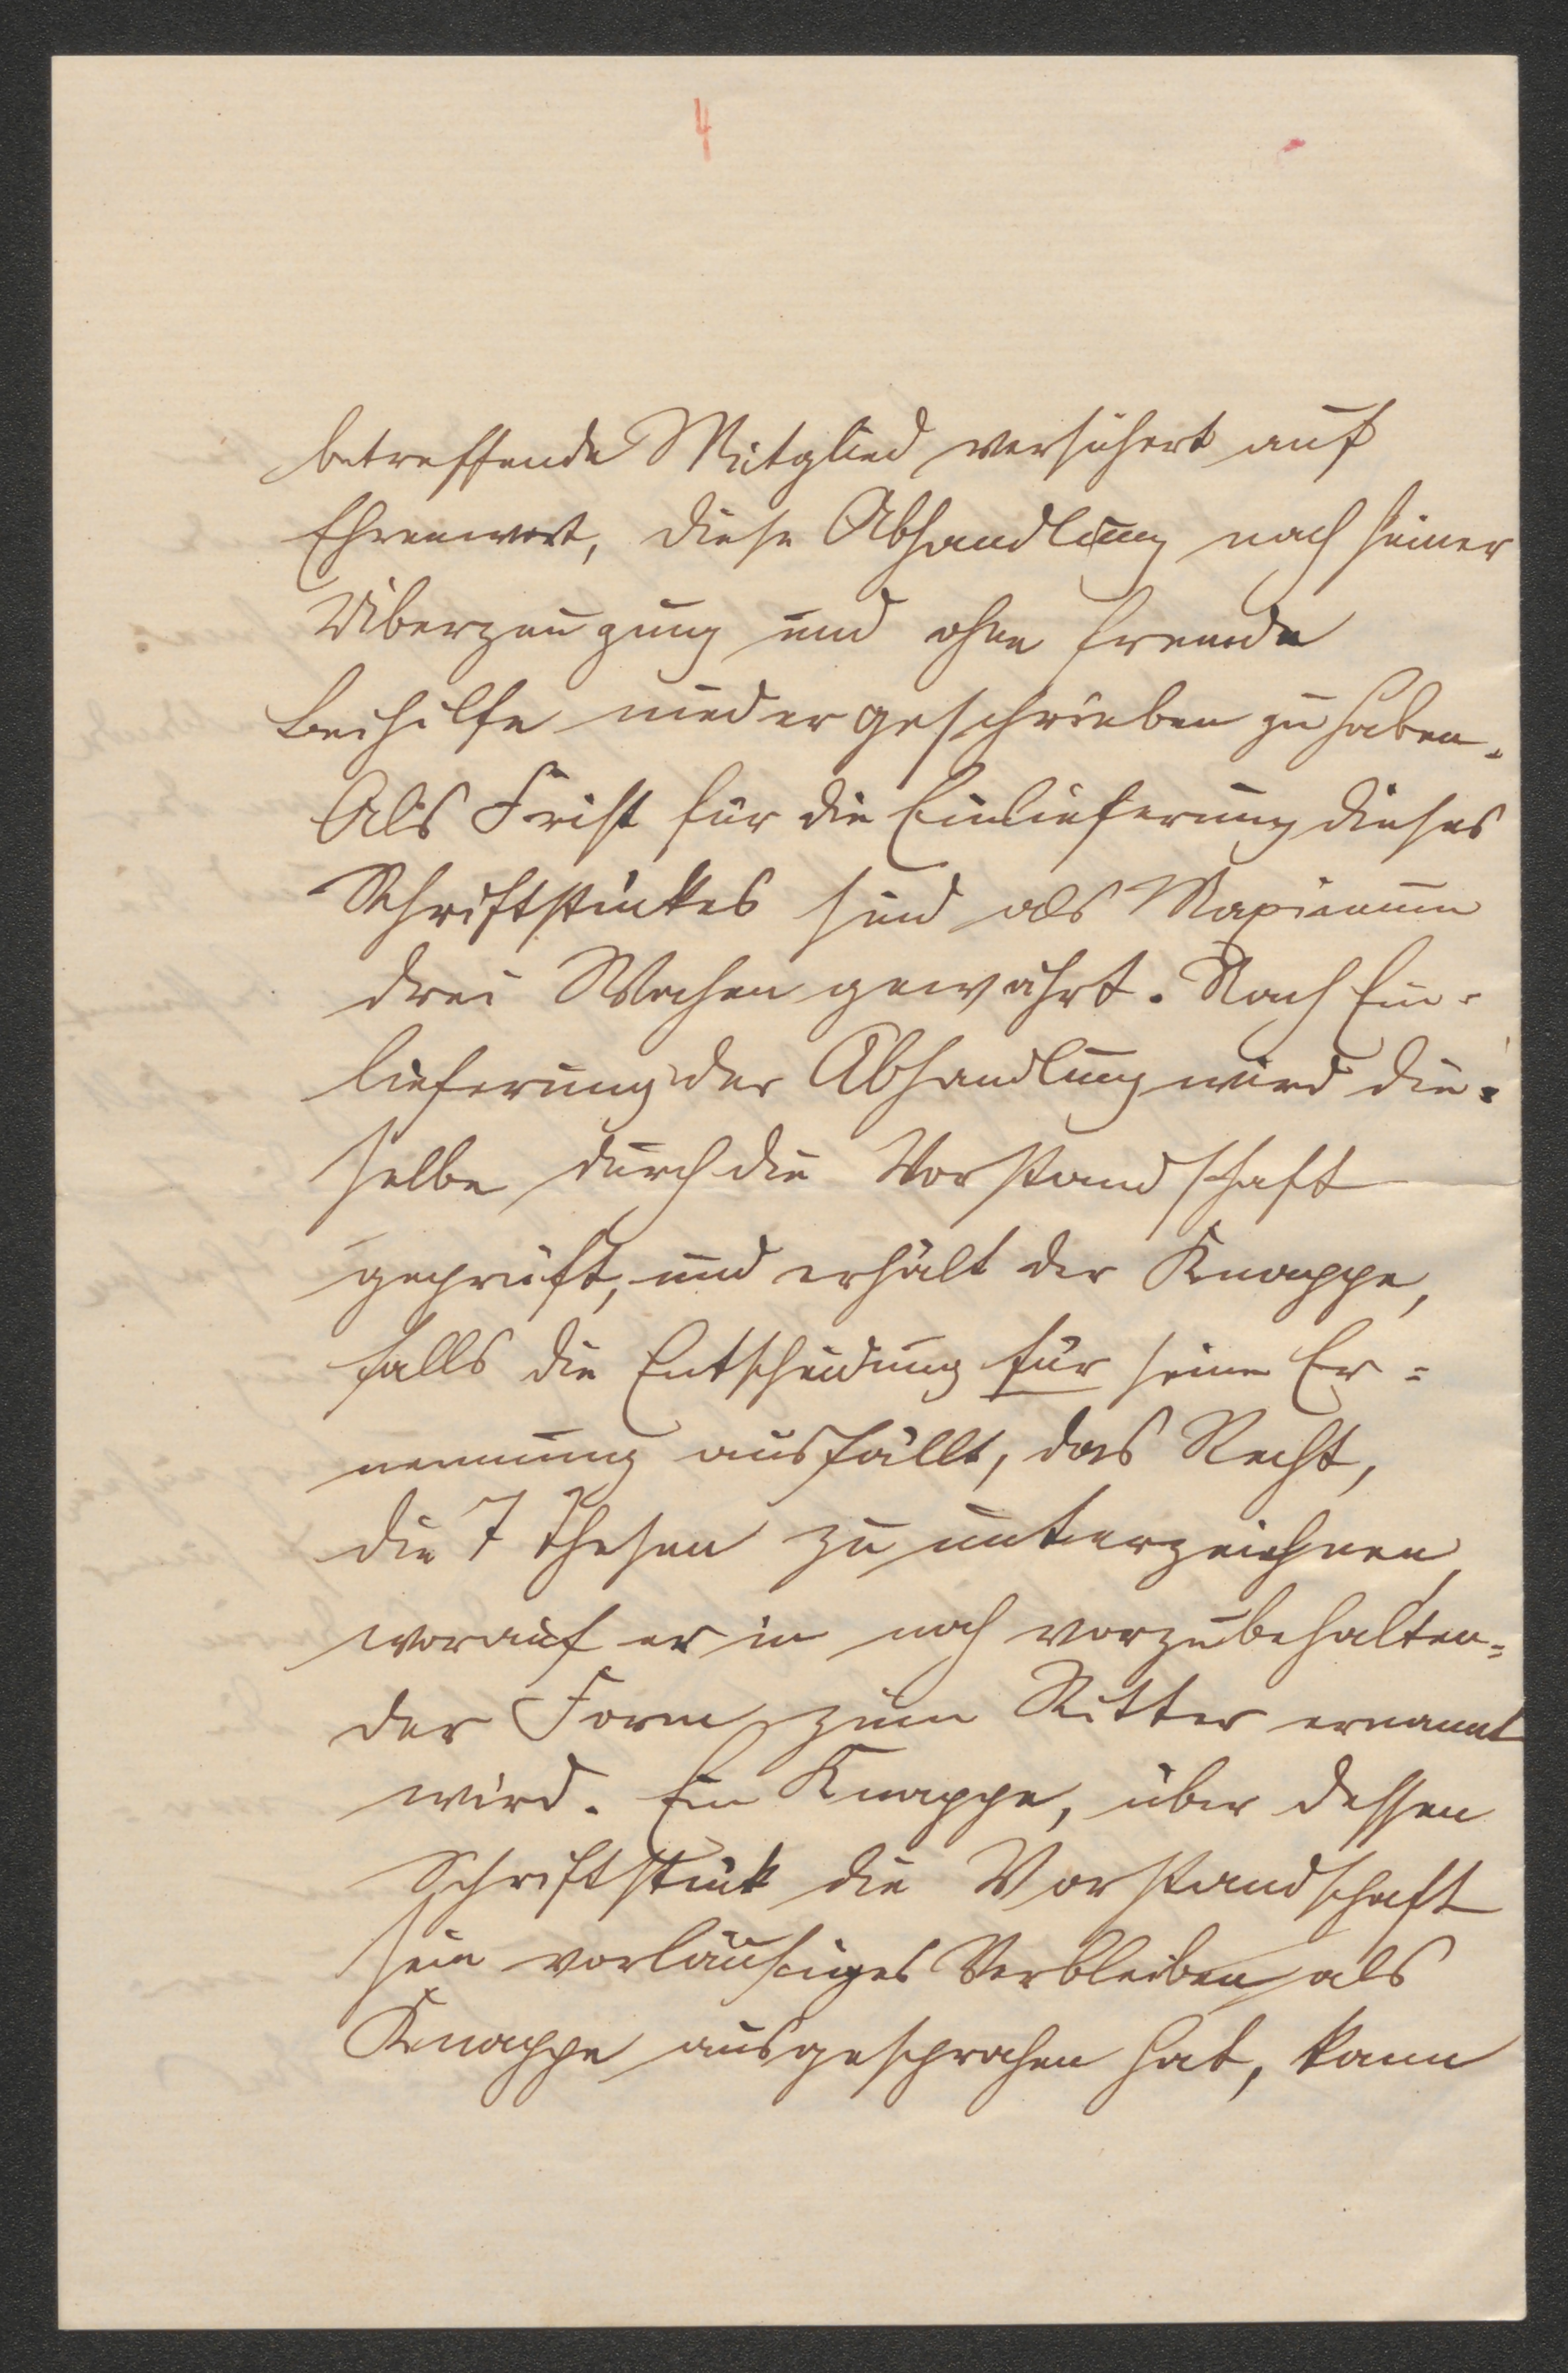 4
betreffende Mitglied versichert auf
Ehrenwort, diese Abhandlung nach seiner
Überzeugung und ohne fremde
Beihilfe niedergeschrieben zu haben.
Als Frist für die Einlieferung dieses
Schriftstückes sind als Maximum
drei Wochen gewährt. Nach Ein-
lieferung der Abhandlung wird die-
selbe durch die Vorstandschaft
geprüft, und erhält der Knappe,
falls die Entscheidung für seine Er-
nennung ausfällt, das Recht,
die 7 Thesen zu unterzeichnen,
worauf er in noch vorzubehalten-
der Form zum Ritter ernannt
wird. Ein Knappe, über dessen
Schriftstück die Vorstandschaft
sein vorläufiges Verbleiben als
Knappe ausgesprochen hat, kann